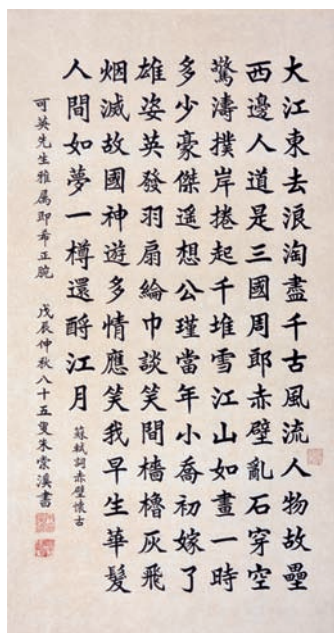 大江東去浪淘盡千古風流人物故壘
西邊人道是三國周郎赤壁亂石穿空
驚濤撲岸捲起千堆雪江山如畫一時
多少豪傑遙想公瑾當年小喬初嫁了
雄姿英發羽扇綸巾談笑間檣櫓灰飛
烟滅故國神遊多情應笑我早生華髮
人間如夢一樽還酹江月
蘇軾詞赤壁懷古
可英先生雅屬即希正腕 戊辰仲秋八十五叟朱崇溪書